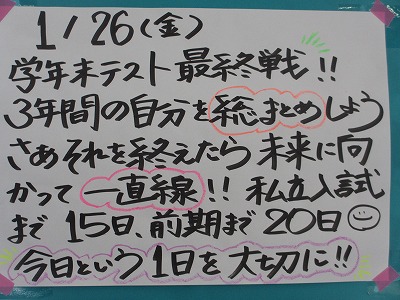 1/26(金)
学年末テスト最終戦!!
3年間の自分を総まとめしよう
さあそれを終えたら未来に向
かって一直線!! 私立入試
まで15日、前期まで20日
今日という1日を大切に!!